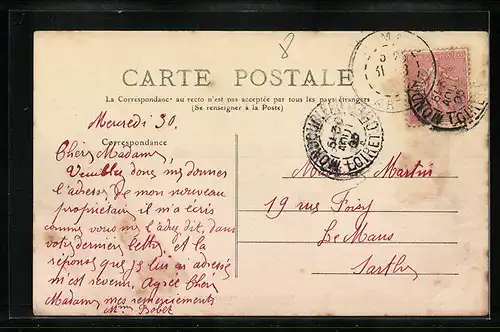 8
CARTE POSTALE
La Correspondance au recto n'est pas acceptée par tous les pays étrangers
(Se renseigner à la Poste)
Correspondance
Mercredi 30.
Chère Madame,
Veuillez donc me donner
l'adresse de mon nouveau
propriétaire il m'a écris
comme vous me l'adez dit, dans
votre dernier lettre et la
réponse que je lui ai adressé
m'est revenu. Agrée Chère
Madame mes remerciements
Mme Bobet
Martin
19 rue
Le Mans
Sarthe
LOIRET